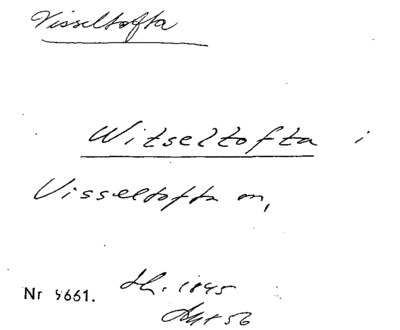 Visseltofta
Witseltofta i
Visseltofta sn,
Nr 9661. 1845
Akt 56